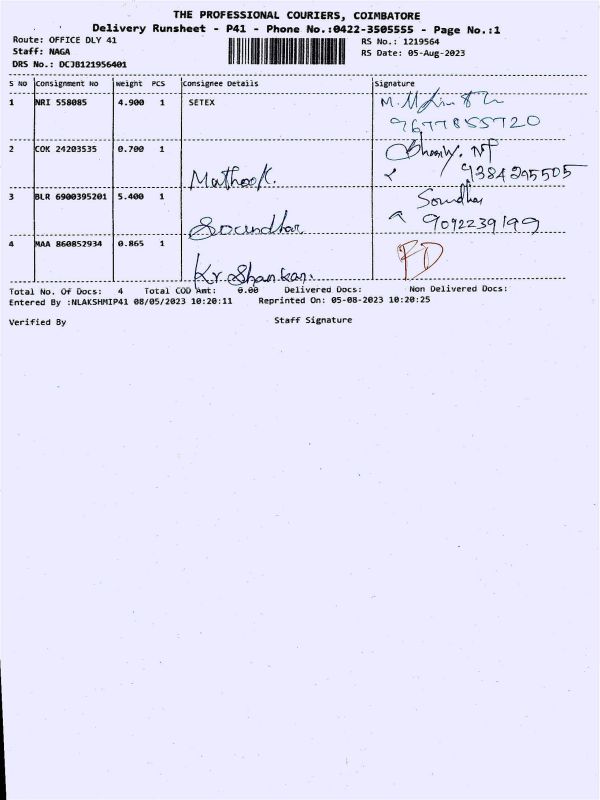 THE PROFESSIONAL COURIERS, COIMBATORE
Delivery Runsheet - P41 - Phone No.:0422-3505555 - Page No.:1
Route: OFFICE DLY 41 RS No.: 1219564
Staff: NAGA RS Date: 05-Aug-2023
DRS No.: DCJB121956401
S NO Consignment No Weight PCS Consignee Details Signature
1 NRI 558085 4.900 1 SETEX
9677855720
2 COK 24203535 0.700 1
9384295505
Mathook.
3 BLR 6900395201 5.400 1 Soundhar
9092239199
Soundhar
4 MAA 860852934 0.865 1 FD
Kr. Shankari.
Total No. Of Docs: 4 Total COD Amt: 0.00 Delivered Docs: Non Delivered Docs:
Entered By :NLAKSHMIP41 08/05/2023 10:20:11 Reprinted On: 05-08-2023 10:20:25
Verified By Staff Signature